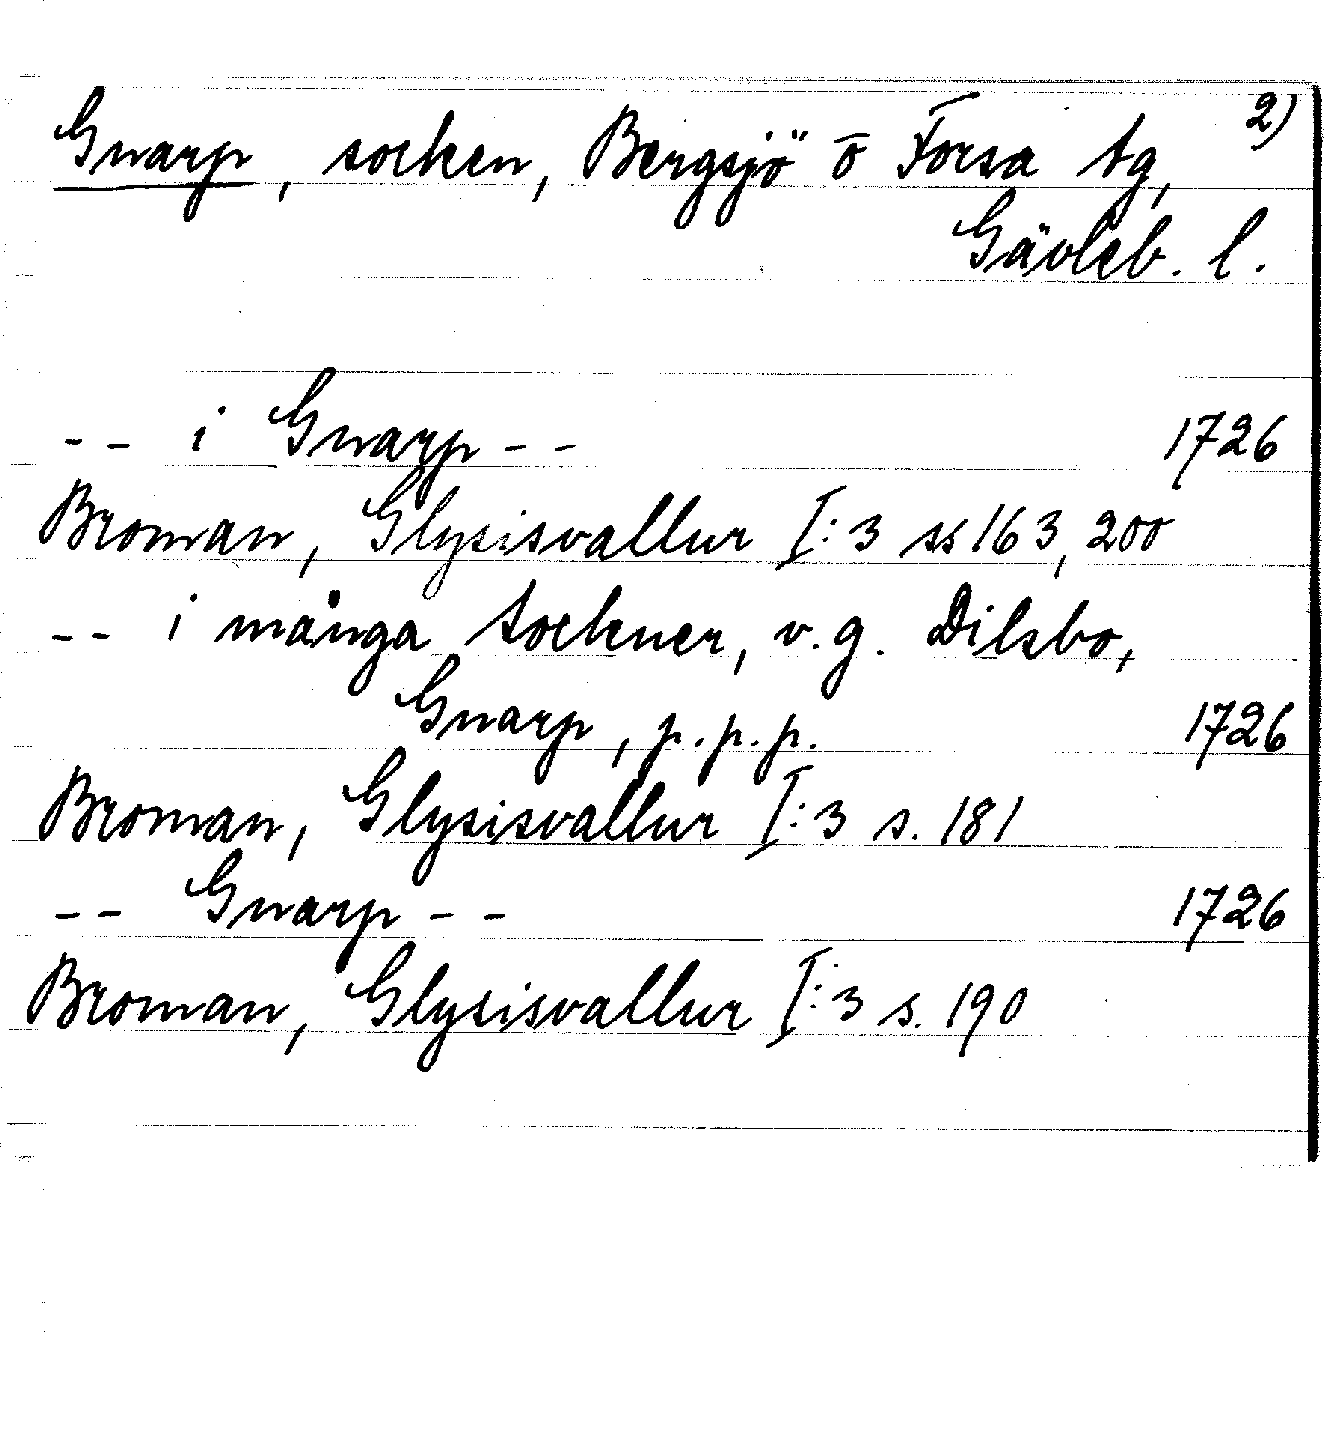 Gnarp, socken, Bergsjö o Forsa tg, 2)
Gävleb. l.
-- i Gnarp -- 1726
Broman, Glysisvallur I:3 ss 163, 200
-- i många Sockner, v.g. Dilsbo,
Gnarp, p.p.p. 1726
Broman, Glysisvallur I:3 s. 181
-- Gnarp -- 1726
Broman, Glysisvallur I:3 s. 190